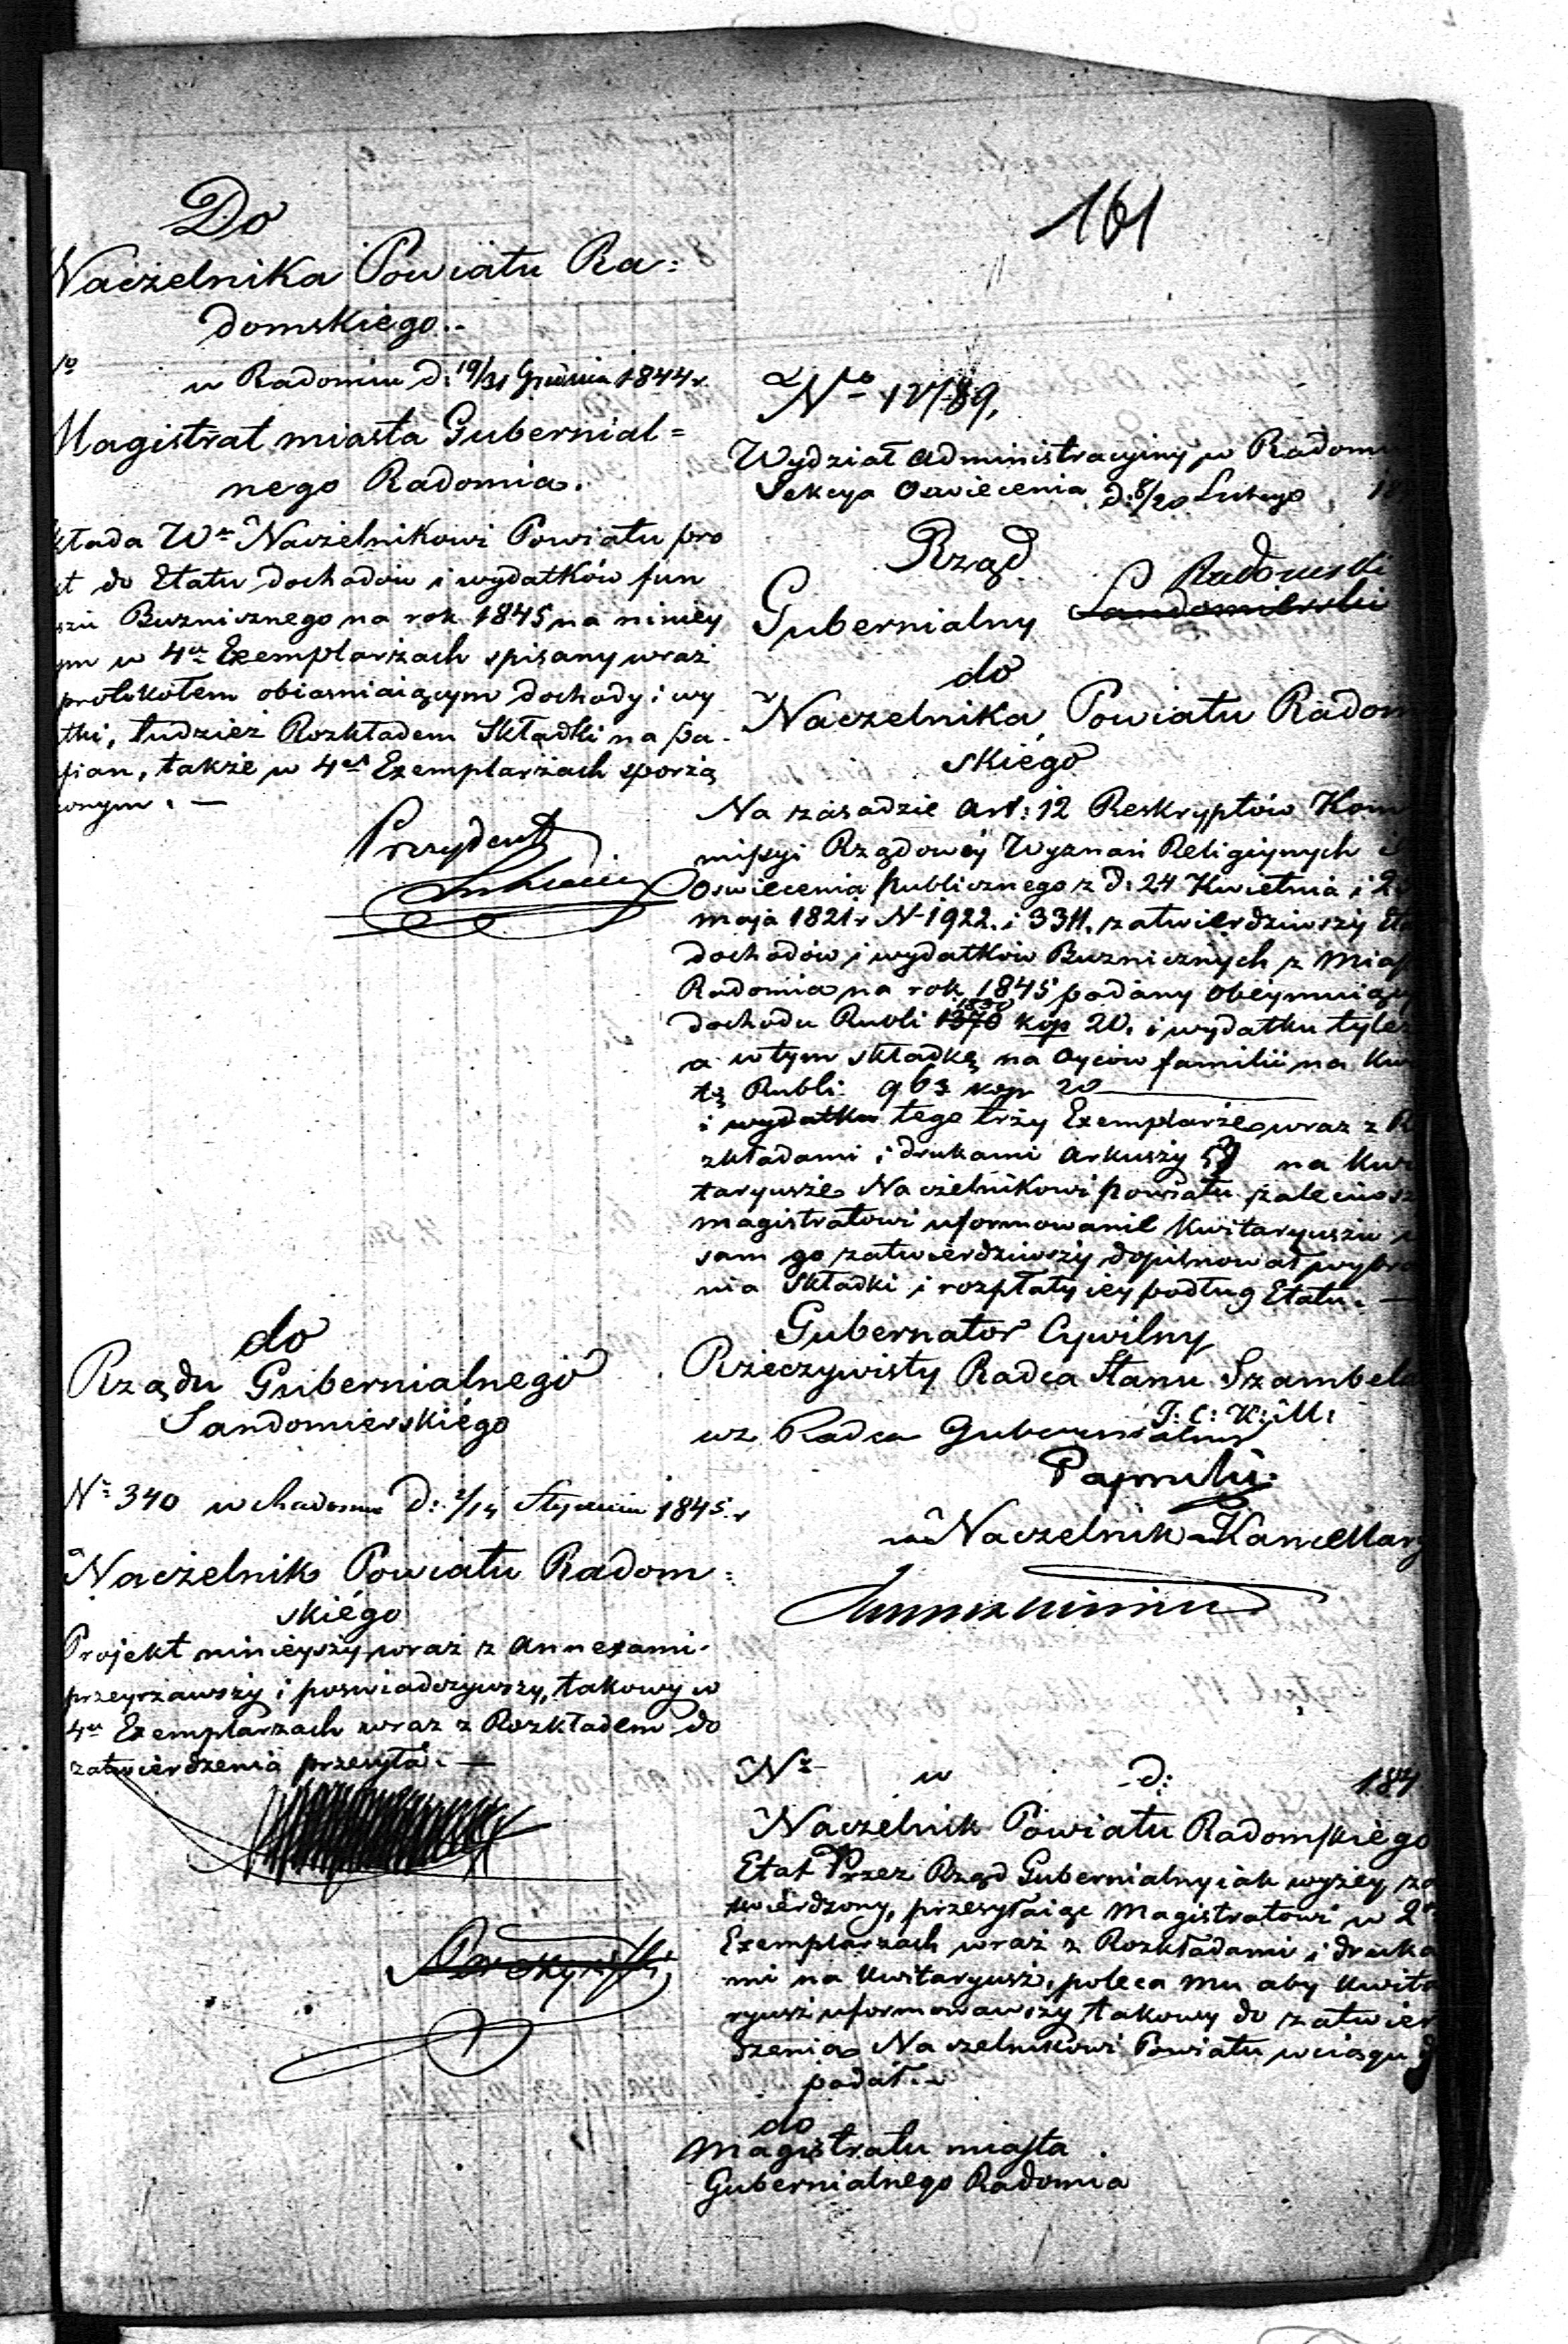 161
Do
Naczelnika Powiatu Ra=
domskiego.
w Radomiu d: 19/31 Grudnia 1844 r.
Magistrat miasta Gubernial=
nego Radomia.
kłada Wu Naczelnikowi Powiatu pro
kt do Etatu dochodów i wydatków fun
szu Buznicznego na rok 1845 na niniey
ym w 4ch Exemplarzach spisany wraz
protokółem obiasniaiącym dochody i wy
tki, tudzież Rozkładem Składki na pa-
fian, także w 4ch Exemplarzach sporzą
zonym. —
Prezydent
do
Rządu Gubernialnego
Sandomierskiego
No 340 w Radomiu d: 2/14 Stycznia 1845 r
Naczelnik Powiatu Radom=
skiego
Projekt ninieyszy wraz z annexami
przeyrzawszy i poswiadczywszy, takowy w
4ch Exemplarzach wraz z Rozkładem do
zatwierdzenia przesyła. —
No 12789.
Wydział Administracyiny w Radom
Sekcya Oswiecenia d: 8/20 Lutego 18
Rząd
Radomski
Gubernialny Sandomierski
do
Naczelnika Powiatu Radom
skiego
Na zasadzie Art: 12 Reskryptów Kom
missyi Rządowéy Wyznań Religiynych i
Oswiecenia publicznego z d: 24 Kwietnia i 2
maja 1821 r N 1922. i 3311. zatwierdziwszy Eta
dochodów i wydatków Buznicznych z Mias
Radomia na rok 1845 podany obeymuiący
dochodu Rubli 1370 kop 20. i wydatku tyle
a w tym składkę na Oyców familii na Kwo
tę Rubli 963 kop 20 —
i wydatku tego trzy Exemplarze wraz z R
zkładami i drukami Arkuszy na Kwi
taryusze Naczelnikowi powiatu
magistratowi uformowanie Kwitaryuszu
sam go zatwierdziwszy dopilnował wybra
nia Składki i rozpłaty iey podług Etatu. —
Gubernator Cywilny
Rzeczywisty Radca Stanu Szambela
J: C: K: M:
wz. Radca Gubernialny
Naczelnik Kancellary
No w d: 184
Naczelnik Powiatu Radomskiego
Etat Przez Rząd Gubernialny iak wyżey za
twierdzony, przesyłaiąc Magistratowi w 2ch
Exemplarzach wraz z Rozkładami i druka
mi na Kwitaryusz, poleca mu aby Kwita
ryusz uformowawszy takowy do zatwier
dzenia Naczelnikowi Powiatu w ciągu d
podał. —
do
Magistratu miasta
Gubernialnego Radomia